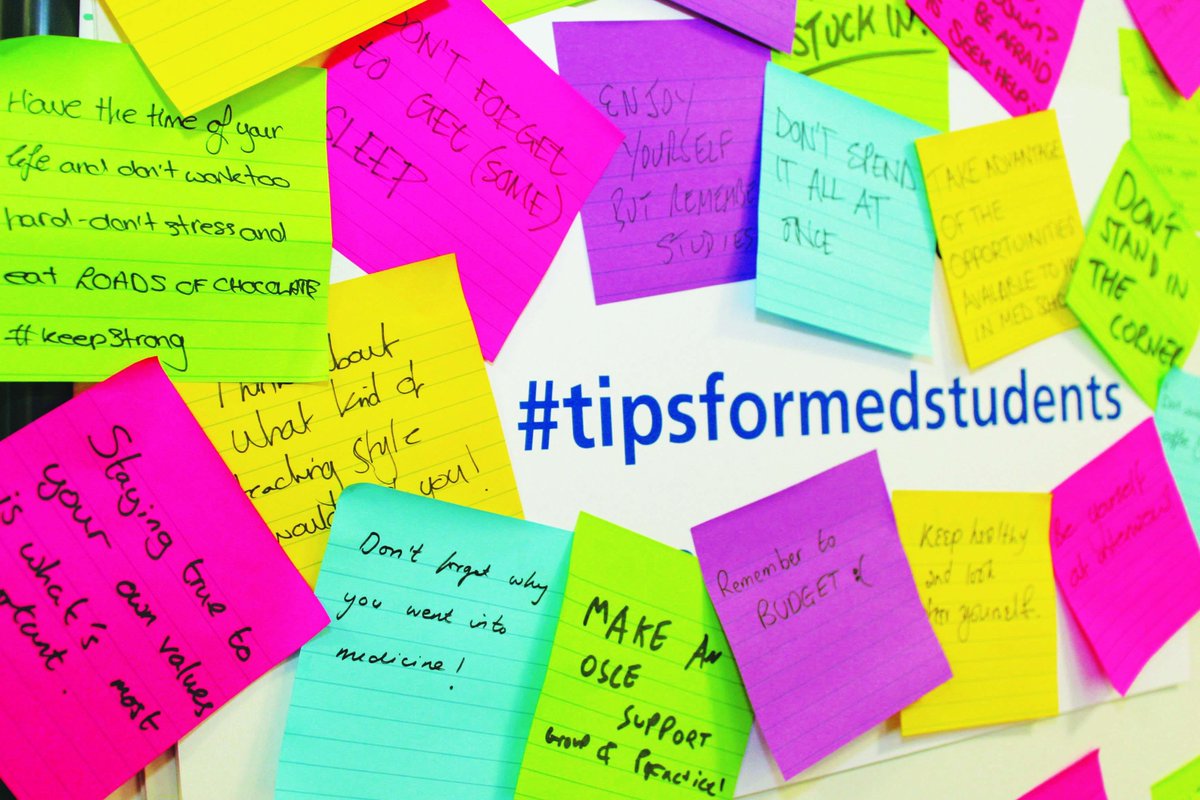 Have the time of your
life and don't work too
hard - don't stress and
eat ROADS OF CHOCOLATE
#keepstrong
DON'T FORGET
to GET (SOME)
SLEEP
ENJOY
YOURSELF
BUT REMEMBER
STUDIES
STUCK IN!
DON'T SPEND
IT ALL AT
ONCE
BE AFRAID
SEEK HELP!!
TAKE ADVANTAGE
OF THE
OPPORTUINITIES
AVAILABLE TO
IN MED
DON'T
STAND IN
THE
CORNER
#tipsformedstudents
Think about
what kind of
teaching style
would you!
Staying true to
your own values
is what's most
Don't forget why
you went into
medicine!
MAKE AN
OSCE
SUPPORT
Group & PRACTICE!
Remember to
BUDGET :(
Keep healthy
and look
yourself.
Be yourself
at interview!